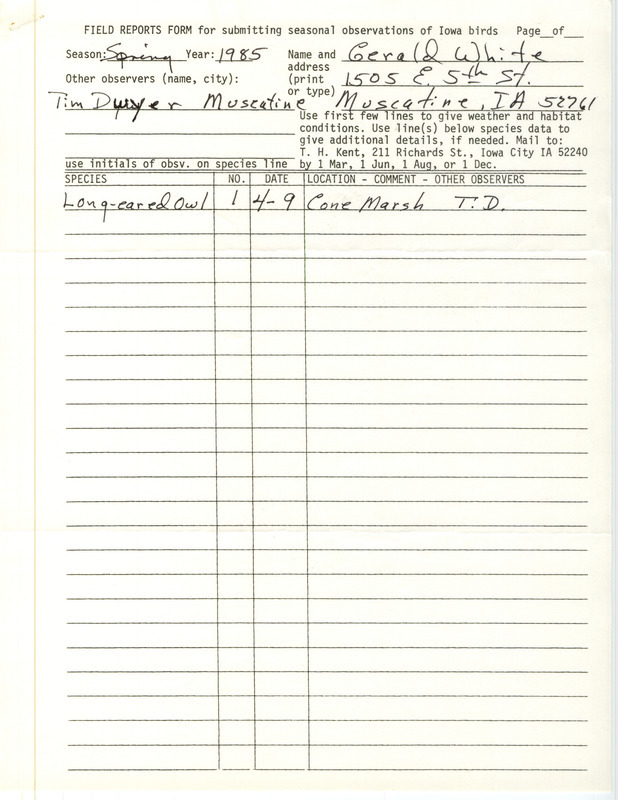 FIELD REPORTS FORM for submitting seasonal observations of Iowa birds Page__of___
Season: Spring Year: 1985 Name and Gerald White
address
Other observers (name, city): (print 1505 E 5th St.
or type)
Tim Dwyer Muscatine Muscatine, IA 52761
Use first few lines to give weather and habitat
conditions. Use line(s) below species data to
give additional details, if needed. Mail to:
T. H. Kent, 211 Richards St., Iowa City IA 52240
use initials of obsv. on species line by 1 Mar, 1 Jun, 1 Aug, or 1 Dec.
SPECIES NO. DATE LOCATION - COMMENT - OTHER OBSERVERS
Long-eared Owl 1 4-9 Cone Marsh T.D.